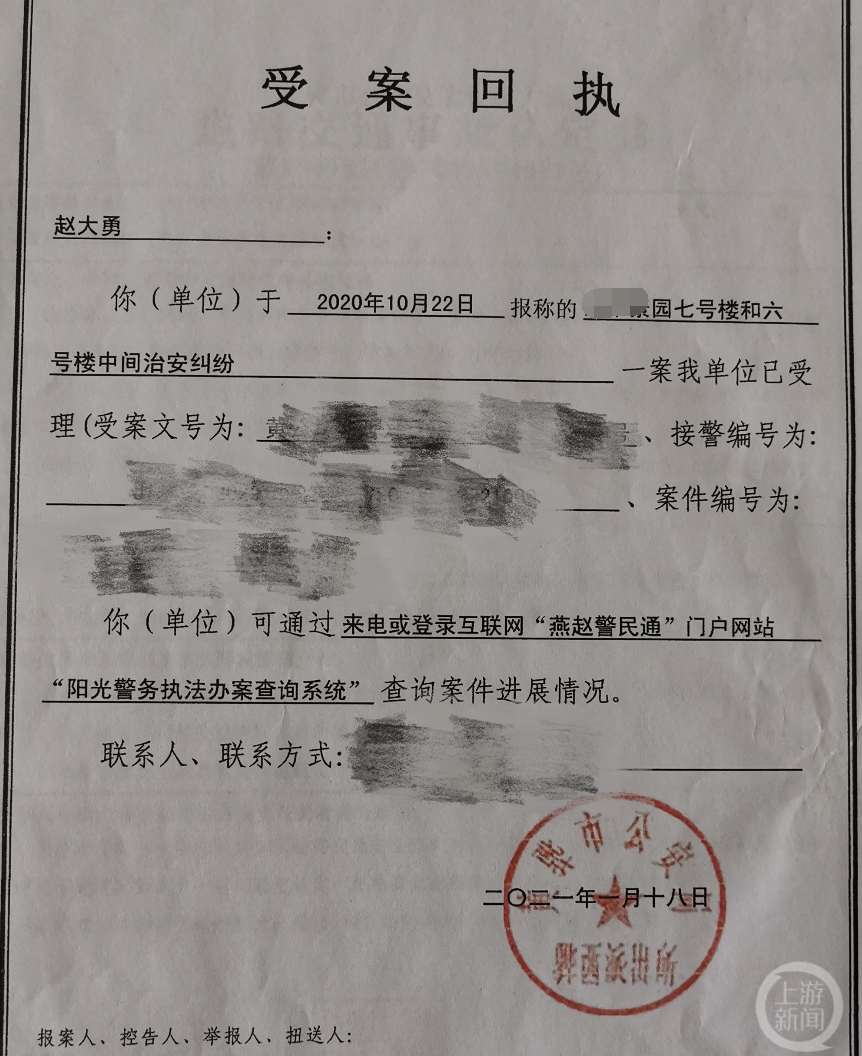 受案回执
赵大勇：
你（单位）于 2020年10月22日 报称的 景园七号楼和六
号楼中间治安纠纷 一案我单位已受
理(受案文号为: 黄 号、接警编号为:
、案件编号为:
你（单位）可通过 来电或登录互联网“燕赵警民通”门户网站
“阳光警务执法办案查询系统” 查询案件进展情况。
联系人、联系方式:
二〇二一年一月十八日
报案人、控告人、举报人、扭送人:
上游
新闻